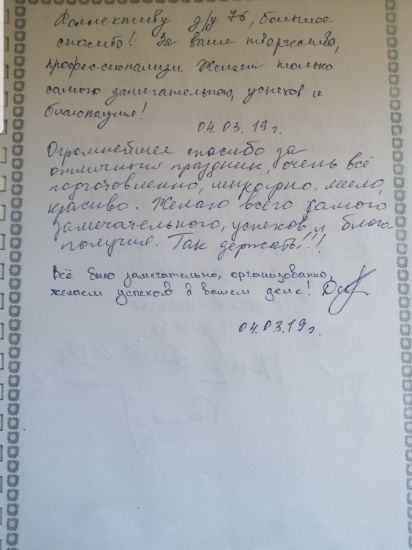 Коллективу д/у 76, большое
спасибо! За ваше творчество,
профессионализм. Желаем только
самого замечательного, успехов и
благополучия!
04.03.19г.
Огромнейшее спасибо за
отличный праздник, очень всё
подготовленно, шикарно. мило,
красиво. Желаю всего самого
замечательного, успехов, и благо
получия. Так держать!!!
Всё было замечательно, организованно,
желаем успехов в вашем деле!
04.03.19г.